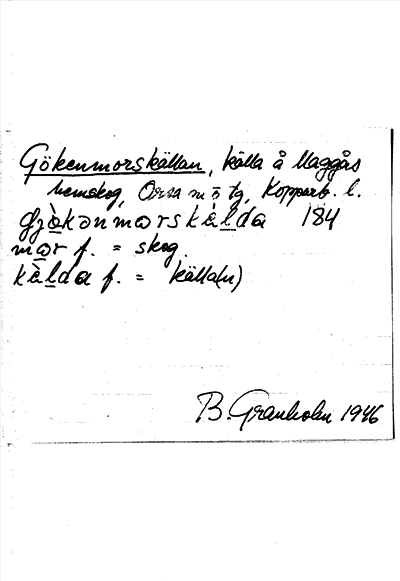 Gökenmorskällan, källa å Maggås
hemskog, Orsa sn o tg, Kopparb. l.
gjòkənmωrskèlda 184
mωr f. = skog.
kèlda f. = källa(n)
B. Granholm 1946